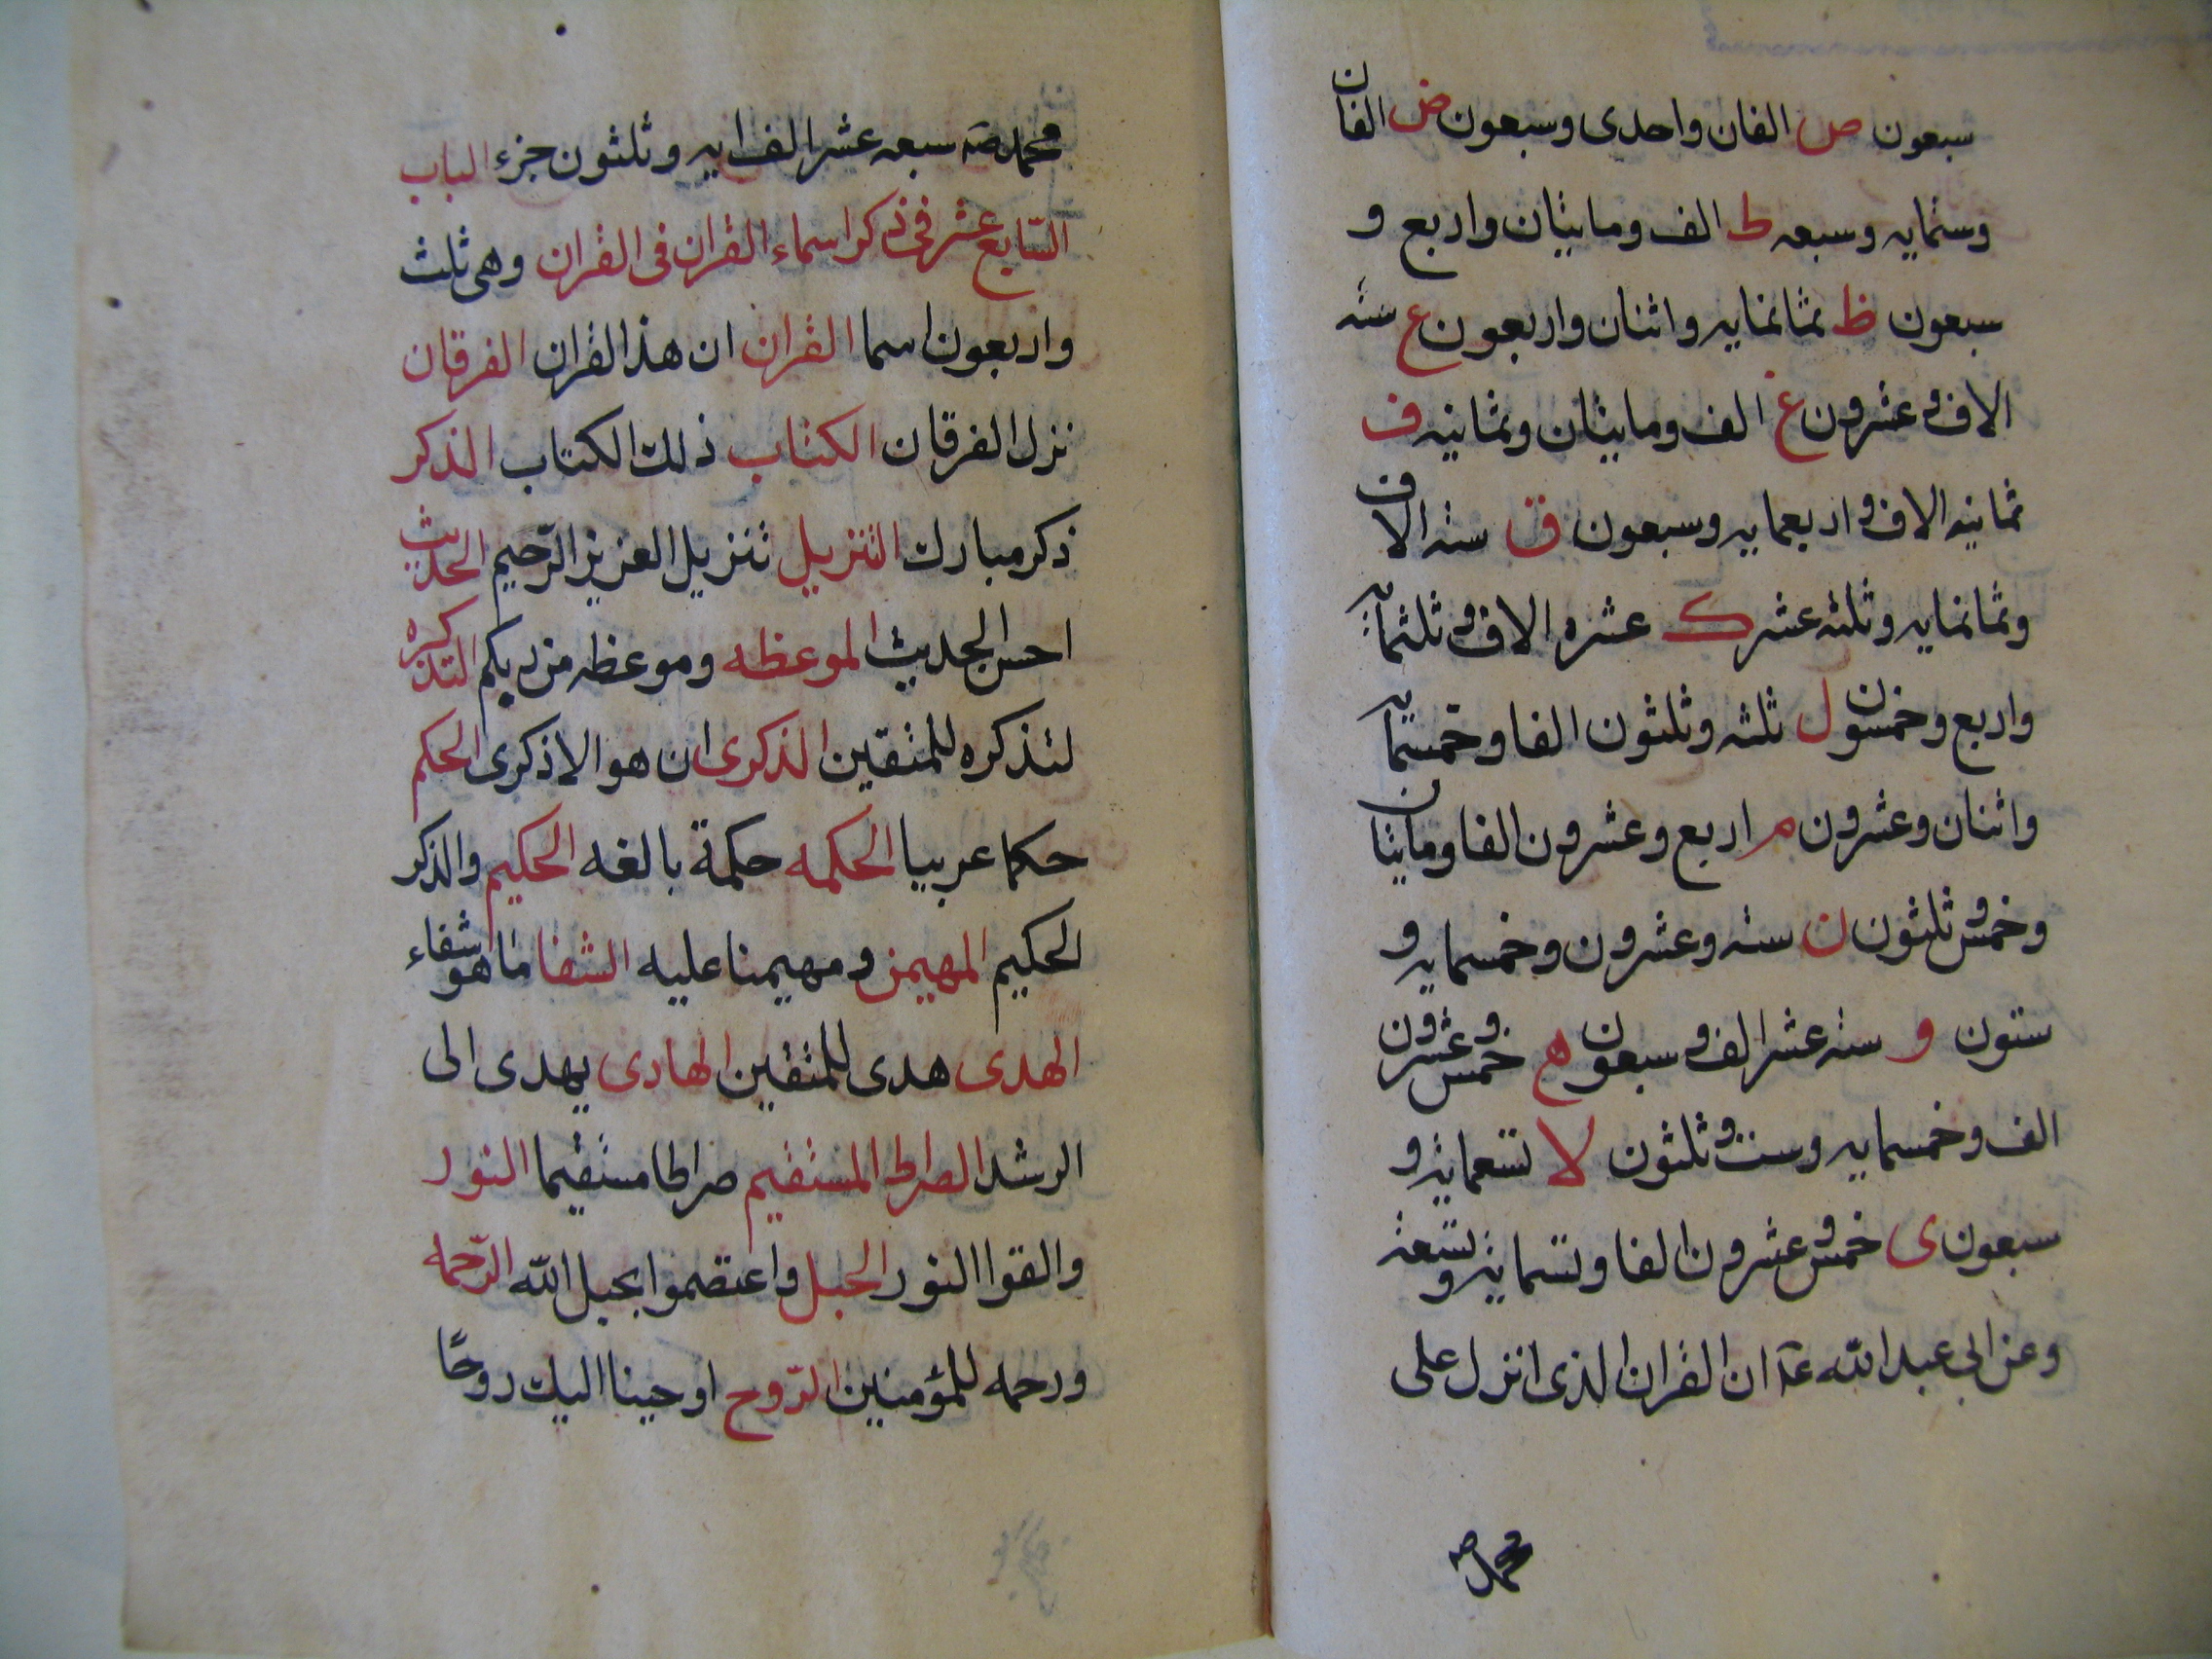 سبعون ص الفان واحدى وسبعون ض الفان
وستمايه وسبعه ط الف ومايتان واربع و
سبعون ظ ثمانمايه واثنان واربعون ع سته
الاف وعشرون غ الف ومايتان وثمانيه ف
ثمانيه الاف واربعمايه وسبعون ق سته الاف
وثمانمايه وثلثه عشر ك عشره الاف وثلثمايه
واربع وخمسون ل ثلثه وثلثون الفا وخمسمايه
واثنان وعشرون م اربع وعشرون الفا ومايتان
وخمس وثلثون ن سته وعشرون وخمسمايه و
ستون و سته عشر الف وسبعون ه خمس وعشرون
الف وخمسمايه وست وثلثون لا تسعمايه و
سبعون ى خمس وعشرون الفا وتسمايه وتسعه
وعن ابى عبد الله عۤ ان القران الذى انزل على
محمد صه
محمد صه سبعه عشر الف ايه وثلثون جزء الباب
السّابع عشر فى ذكر اسماء القران فى القران وهى ثلث
واربعون اسما القران ان هذا القران الفرقان
نزل الفرقان الكتاب ذلك الكتاب الذكر
ذكر مبارك التنزيل تنزيل العزيز الرّحيم الحديث
احسن الحديث الموعظه وموعظه من ربكم التذكره
لتذكره للمتقين الذكرى ان هو الا ذكرى الحكم
حكما عربيا الحكمه حكمة بالغه الحكيم والذكر
الحكيم المهيمن ومهيمنا عليه الشفا ما هو شفاء
الهدى هدى للمتقين الهادى يهدى الى
الرشد الصراط المستقيم صراطا مستقيما النور
والقوا النور الحبل واعتصموا بحبل اللّه الرّحمه
ورحمه للمؤمنين الرّوح اوحينا اليك روحًا